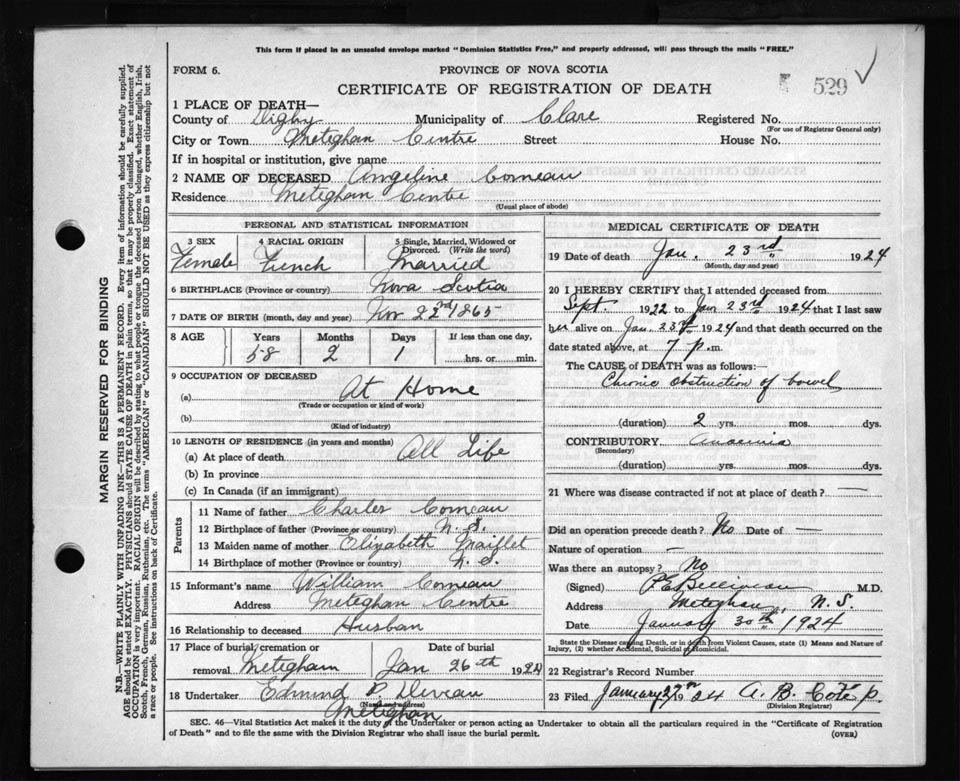 This form if placed in an unsealed envelope marked "Dominion Statistics Free," and properly addressed, will pass through the mails "FREE."
FORM 6.
PROVINCE OF NOVA SCOTIA
CERTIFICATE OF REGISTRATION OF DEATH
529
1 PLACE OF DEATH—
County of Digby Municipality of Clare Registered No.
(For use of Registrar General only)
City or Town Meteghan Centre Street House No.
If in hospital or institution, give name
2 NAME OF DECEASED Angeline Comeau
Residence Meteghan Centre
(Usual place of abode)
PERSONAL AND STATISTICAL INFORMATION
3 SEX 4 RACIAL ORIGIN 5 Single, Married, Widowed or Divorced. (Write the word)
Female French Married
6 BIRTHPLACE (Province or country) Nova Scotia
7 DATE OF BIRTH (month, day and year) Nov 22nd 1865
8 AGE Years Months Days If less than one day,
58 2 1 hrs. or min.
9 OCCUPATION OF DECEASED
(a) At Home
(Trade or occupation or kind of work)
(b)
(Kind of industry)
10 LENGTH OF RESIDENCE (in years and months)
(a) At place of death All Life
(b) In province
(c) In Canada (if an immigrant)
Parents
11 Name of father Charles Comeau
12 Birthplace of father (Province or country) N. S.
13 Maiden name of mother Elizabeth
14 Birthplace of mother (Province or country) N. S.
15 Informant's name William Comeau
Address Meteghan Centre
16 Relationship to deceased Husban
17 Place of burial, cremation or removal Meteghan Date of burial Jan 26th 1924
18 Undertaker Edmund P. Deveau
(Name and address)
Meteghan
MEDICAL CERTIFICATE OF DEATH
19 Date of death Jan. 23rd 1924
(Month, day and year)
20 I HEREBY CERTIFY that I attended deceased from
Sept. 1922 to Jan 23rd 1924 that I last saw
her alive on Jan. 23rd 1924 and that death occurred on
date stated above, at 7 p.m.
The CAUSE of DEATH was as follows:
Chronic obstruction of bowel
(duration) 2 yrs. mos. dys.
CONTRIBUTORY Anaemia
(Secondary)
(duration) yrs. mos. dys.
21 Where was disease contracted if not at place of death? —
Did an operation precede death? No Date of —
Nature of operation —
Was there an autopsy? No
(Signed) P E Belliveau M.D.
Address Meteghan, N. S.
Date January 30th 1924
State the Disease causing Death, or in death from Violent Causes, state (1) Means and Nature of Injury, (2) whether Accidental, Suicidal or Homicidal.
22 Registrar's Record Number
23 Filed January 29th 1924 A. B.
(Division Registrar)
SEC. 46—Vital Statistics Act makes it the duty of the Undertaker or person acting as Undertaker to obtain all the particulars required in the "Certificate of Registration
of Death" and to file the same with the Division Registrar who shall issue the burial permit. (OVER)
MARGIN RESERVED FOR BINDING
N.B.—WRITE PLAINLY WITH UNFADING INK—THIS IS A PERMANENT RECORD. Every item of information should be carefully supplied.
AGE should be stated EXACTLY. PHYSICIANS should STATE CAUSE OF DEATH in plain terms, so that it may be properly classified. Exact statement of
OCCUPATION is very important. RACIAL ORIGIN will be described by stating to what people or tongue the deceased person belonged, whether English, Irish,
Scotch, French, German, Russian, Ruthenian, etc. The terms "AMERICAN" or "CANADIAN" SHOULD NOT BE USED as they express citizenship but not
a race or people. See instructions on back of Certificate.